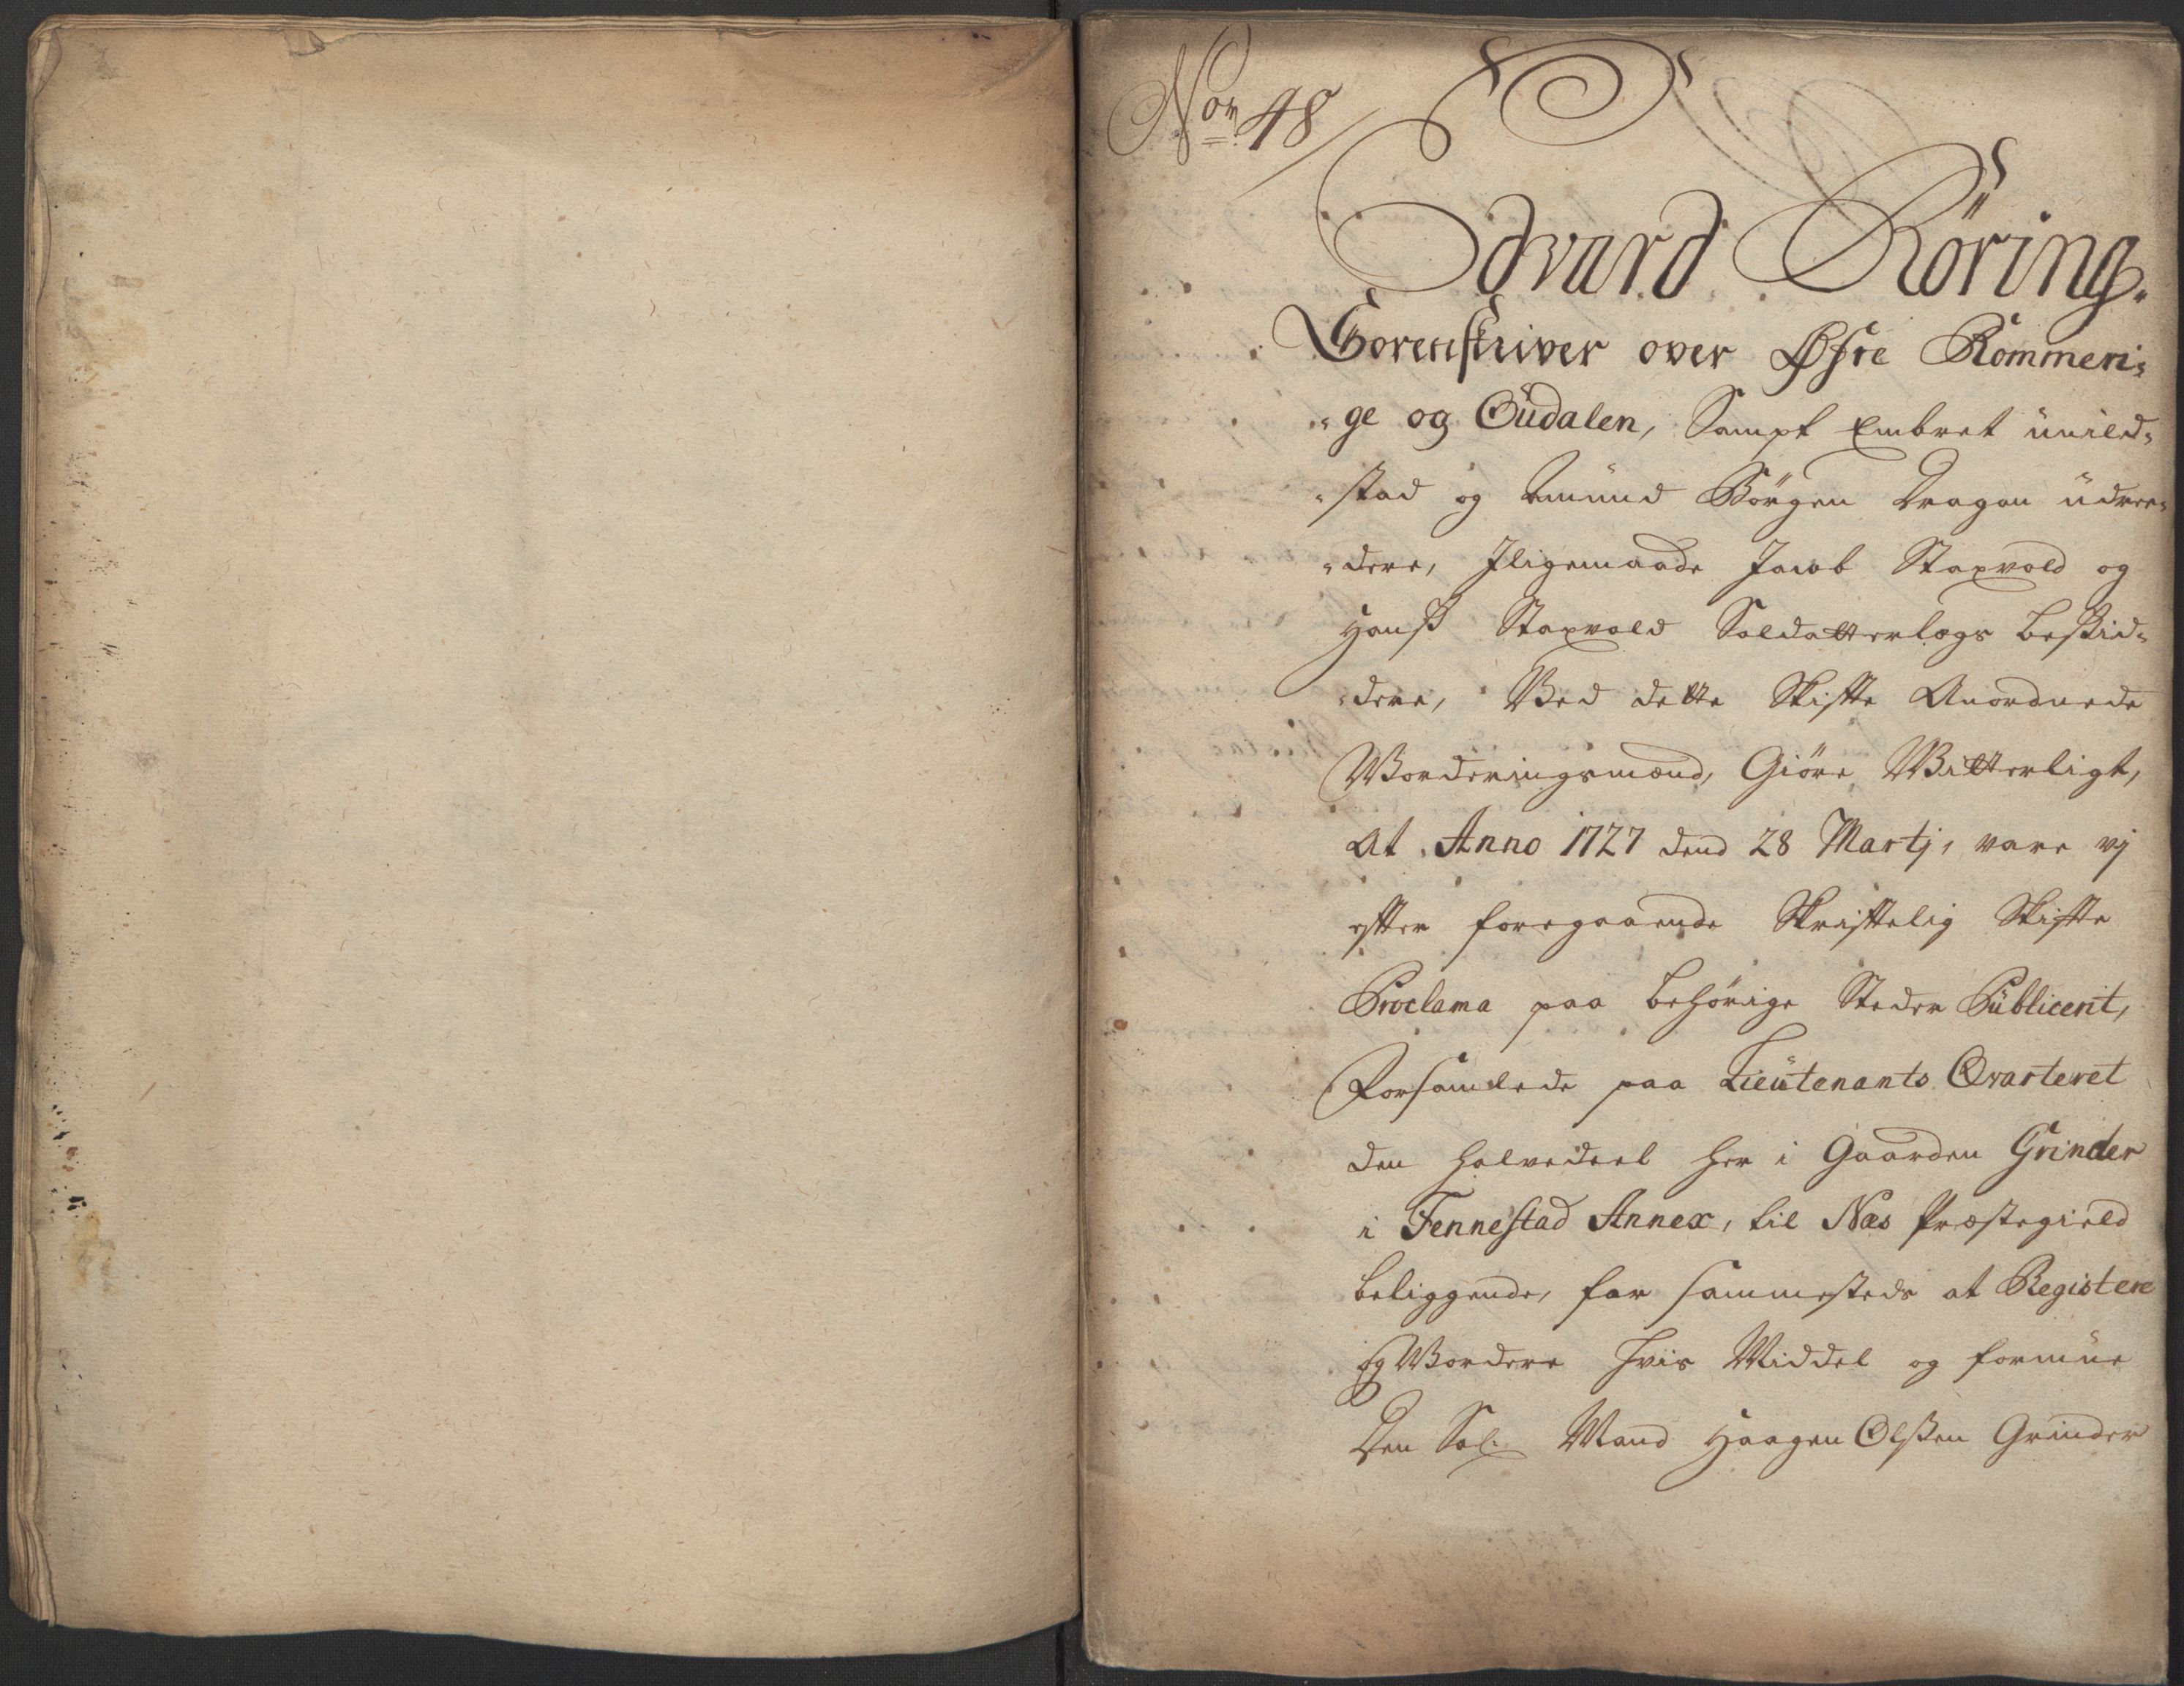 Nom 48
Edvard Röring.
Sorenskriver over Øfre Rommeri-
-ge og Oudalen, Sampt Embret
-stad og Amund Börgen Dragon üdree-
-dere, Jligemaade Jacob Staxvold og
Hanß Staxvold Soldatterlægs beskid-
-dere, Ved dette Skifte Anordnede
Worderingsmænd, Giöre Witterligt,
At Anno 1727 dend 28 Martj, vare vj
efter foregaaende Skriftelig Skifte
Proclama paa behörige Steder Püblicerit,
Forsamlede paa Lieütenants Qvarteret
den halvedeel her i Gaarden Grinder
i Fennestad Annex, til Næs Præstegield
beliggende, for sammesteds at Registere
og Wordere hvis Middel og formüe
Den Sal: Mand Haagen Olßen Grinder